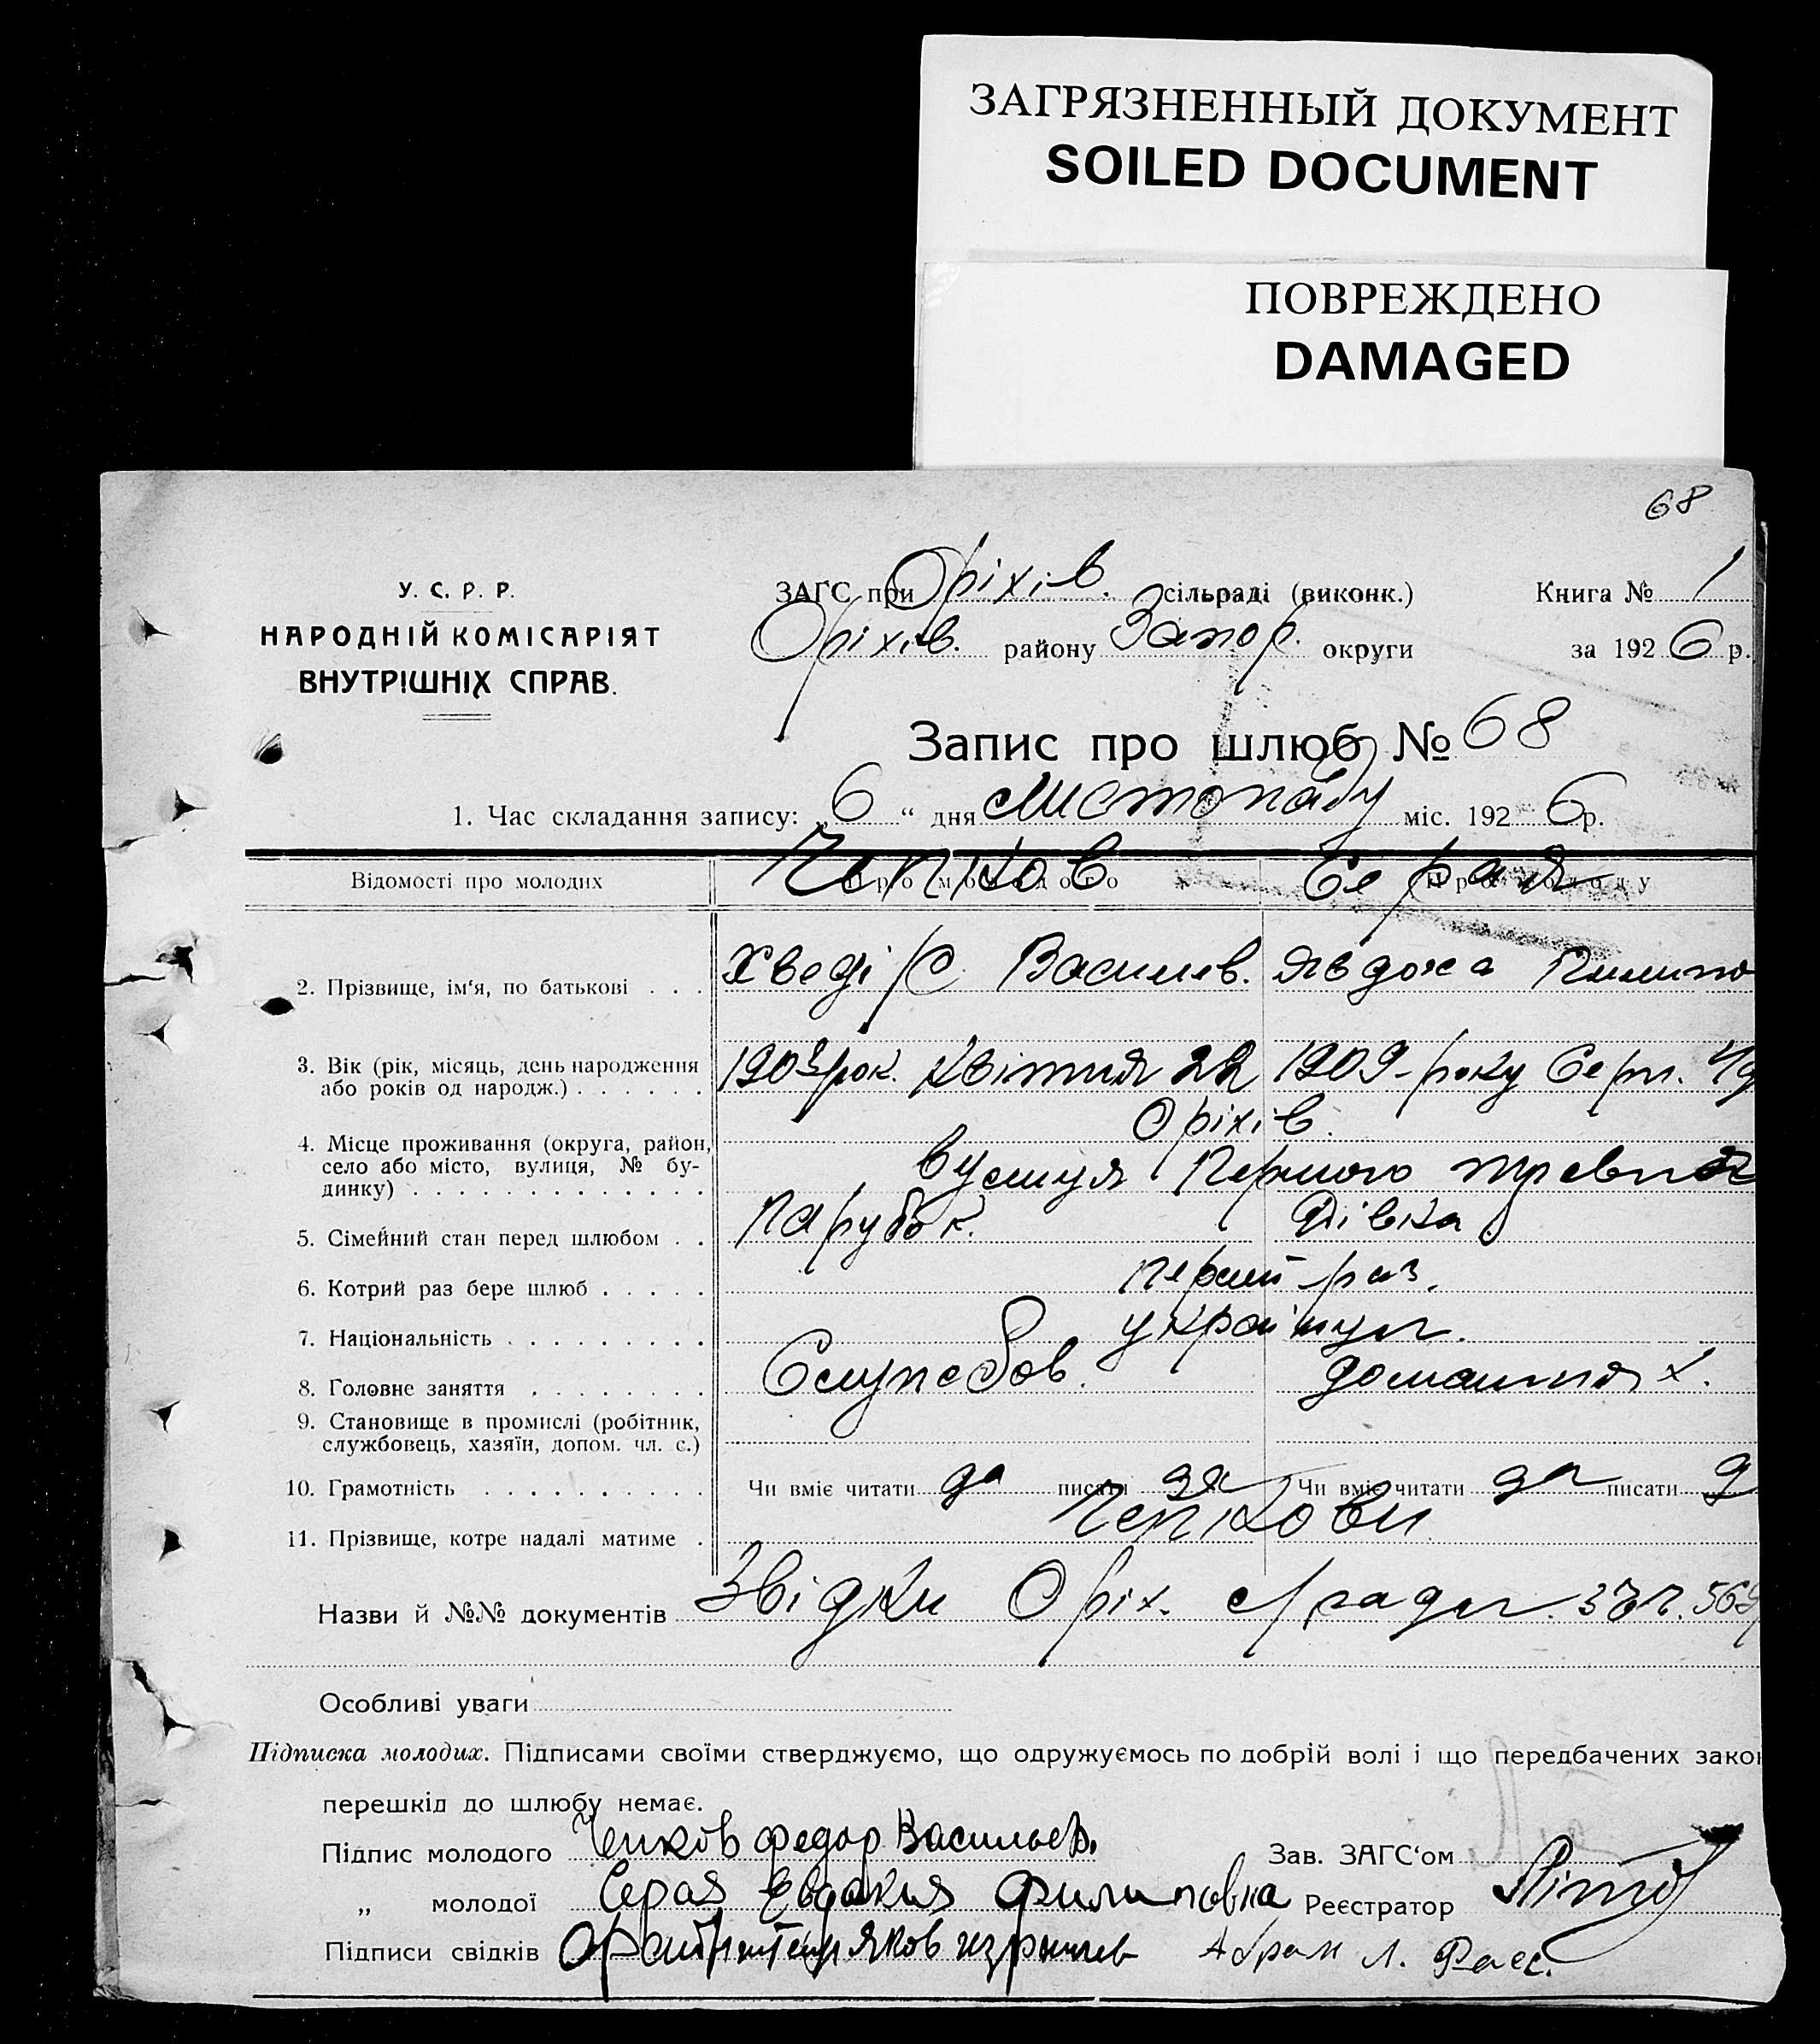 ЗАГРЯЗНЕННЫЙ ДОКУМЕНТ
SOILED DOCUMENT
ПОВРЕЖДЕНО
DAMAGED
68
У. С. Р. Р.
НАРОДНІЙ КОМІСАРІЯТ
ВНУТРІШНІХ СПРАВ.
ЗАГС при Оріхів. сільраді (виконк.) Книга № 1
Оріхів. району Запор. округи за 1926 р.
Запис про шлюб № 68
1. Час складання запису: „6“ дня Листопаду міс. 1926 р.
Чепков Серая
Відомості про молодих Про молодого Про молоду
2. Прізвище, ім'я, по батькові . . . Хведір Василев. Явдоха Пилипо
3. Вік (рік, місяць, день народження 190 рок. Квітня 22 1909-року Серп.
або років од народж.) . . . . . .
Оріхів.
4. Місце проживання (округа, район,
село або місто, вулиця, № бу- вулиця Першого
динку) . . . . . . . . . . . . .
5. Сімейний стан перед шлюбом . . Парубок. Дівка
6. Котрий раз бере шлюб . . . . . перший раз.
7. Національність . . . . . . . . .
8. Головне заняття . . . . . . . . домашня х.
9. Становище в промислі (робітник,
службовець, хазяїн, допом. чл. с.)
10. Грамотність . . . . . . . . . . Чи вміє читати да писати да Чи вміє читати да писати д
11. Прізвище, котре надалі матиме . Чепкови
Назви й №№ документів Звідки Оріх. с/ради
Особливі уваги
Підписка молодих. Підписами своїми стверджуємо, що одружуємось по добрій волі і що передбачених зако
перешкід до шлюбу немає.
Підпис молодого Чепков Федор Васильев. Зав. ЗАГС'ом
„ молодої Серая Евдокия Филиповна Реєстратор
Підписи свідків Яков Абрам Л.